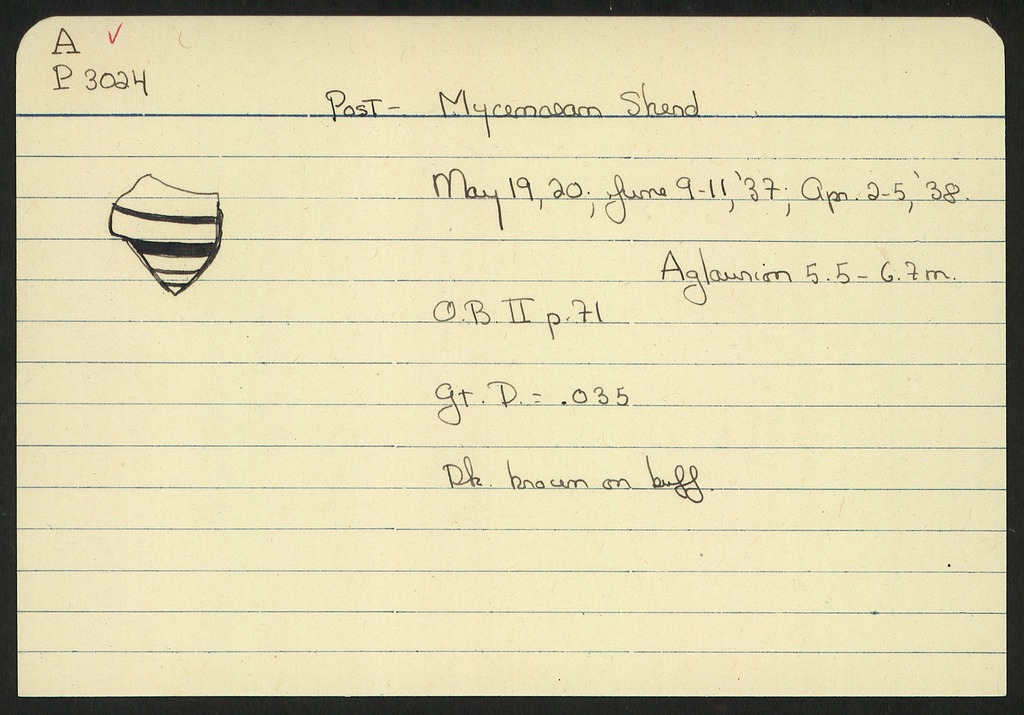 A ✓
P 3024
Post- Mycenaean Sherd
May 19, 20; June 9-11, '37; Apr. 2-5, '38.
Aglaurion 5.5 - 6.7 m.
O.B. II p. 71
Gt. D. = .035
Dk. brown on buff.